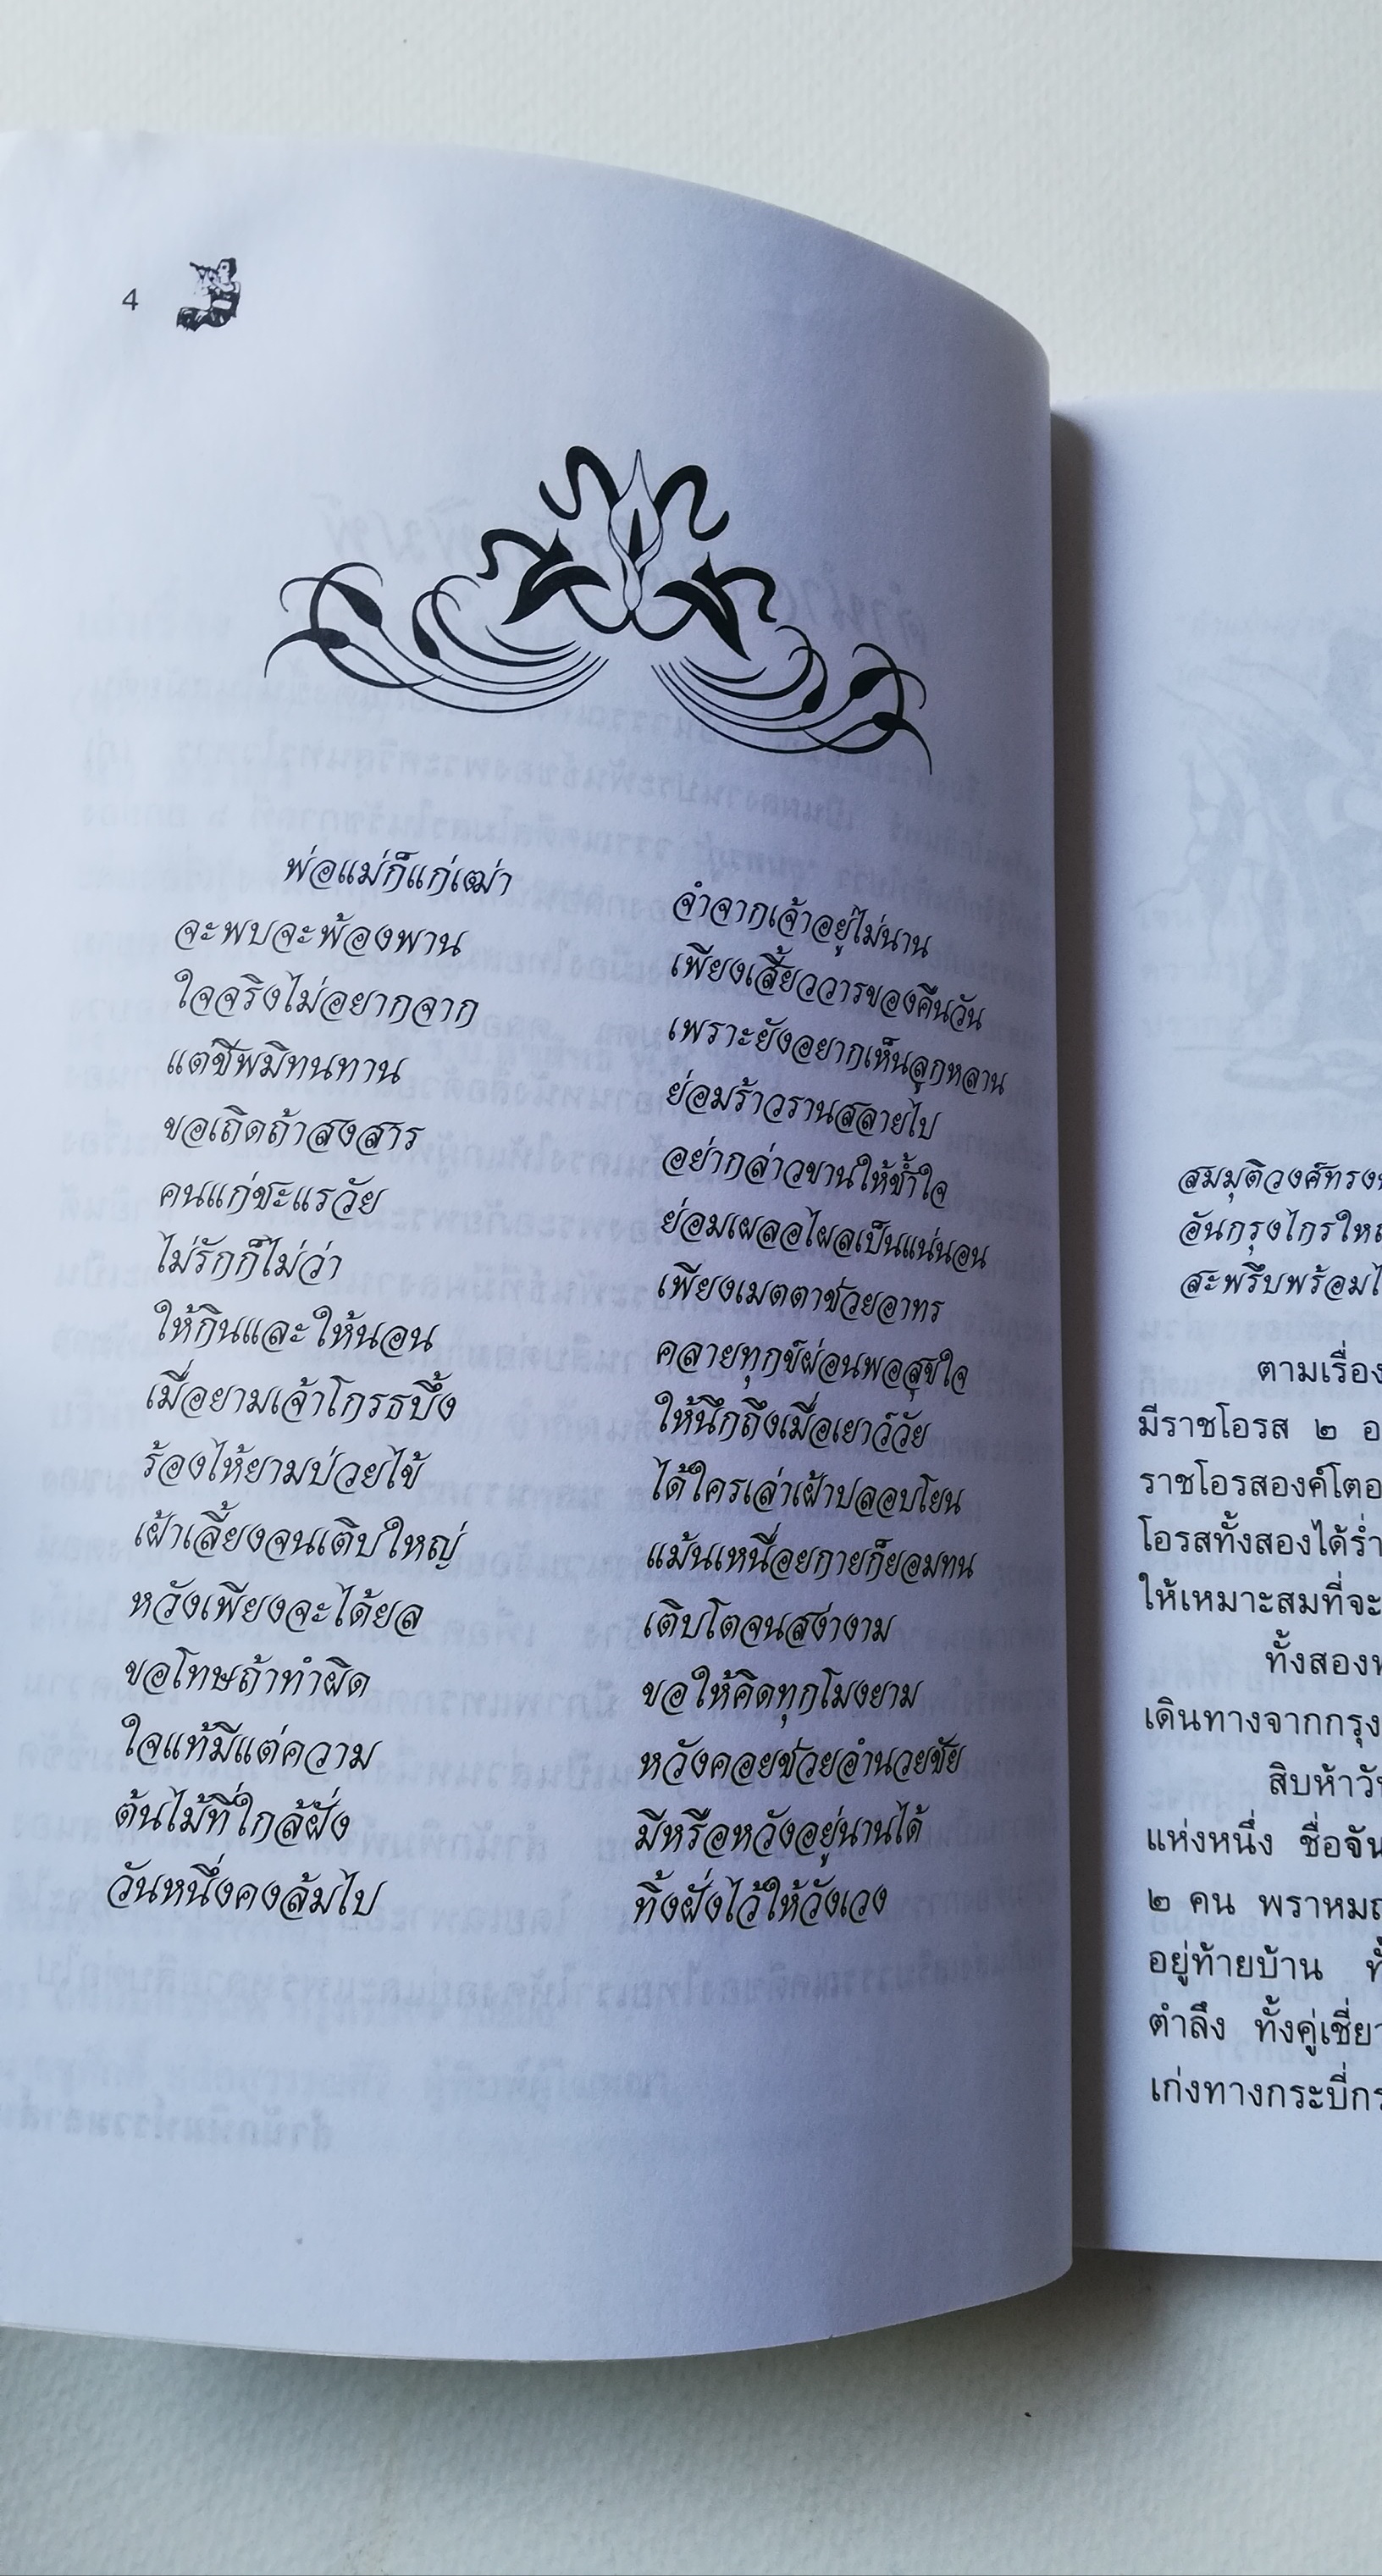 4
พ่อแม่ก็แก่เฒ่า จำจากเจ้าอยู่ไม่นาน
จะพบจะพ้องพาน เพียงเสี้ยววารของคืนวัน
ใจจริงไม่อยากจาก เพราะยังอยากเห็นลูกหลาน
แต่ชีพมิทนทาน ย่อมร้าวรานสลายไป
ขอเถิดถ้าสงสาร อย่ากล่าวขานให้ช้ำใจ
คนแก่ชะแรวัย ย่อมเผลอไผลเป็นแน่นอน
ไม่รักก็ไม่ว่า เพียงเมตตาช่วยอาทร
ให้กินและให้นอน คลายทุกข์ผ่อนพอสุขใจ
เมื่อยามเจ้าโกรธขึ้ง ให้นึกถึงเมื่อเยาว์วัย
ร้องไห้ยามป่วยไข้ ได้ใครเล่าเฝ้าปลอบโยน
เฝ้าเลี้ยงจนเติบใหญ่ แม้นเหนื่อยกายก็ยอมทน
หวังเพียงจะได้ยล เติบโตจนสง่างาม
ขอโทษถ้าทำผิด ขอให้คิดทุกโมงยาม
ใจแท้มีแต่ความ หวังคอยช่วยอำนวยชัย
ต้นไม้ที่ใกล้ฝั่ง มีหรือหวังอยู่นานได้
วันหนึ่งคงล้มไป ทิ้งฝั่งไว้ให้วังเวง
สมมุติวงศ์ทรง
อันกรุงไกรใหญ่
สะพรึบพร้อม
ตามเรื่อง
มีราชโอรส ๒
ราชโอรสองค์โต
โอรสทั้งสองได้ร่ำ
ให้เหมาะสมที่จะ
ทั้งสอง
เดินทางจากกรุง
สิบห้าวัน
แห่งหนึ่ง ชื่อจัน
๒ คน พราหมณ์
อยู่ท้ายบ้าน
ตำลึง ทั้งคู่เชี่ยว
เก่งทางกระบี่